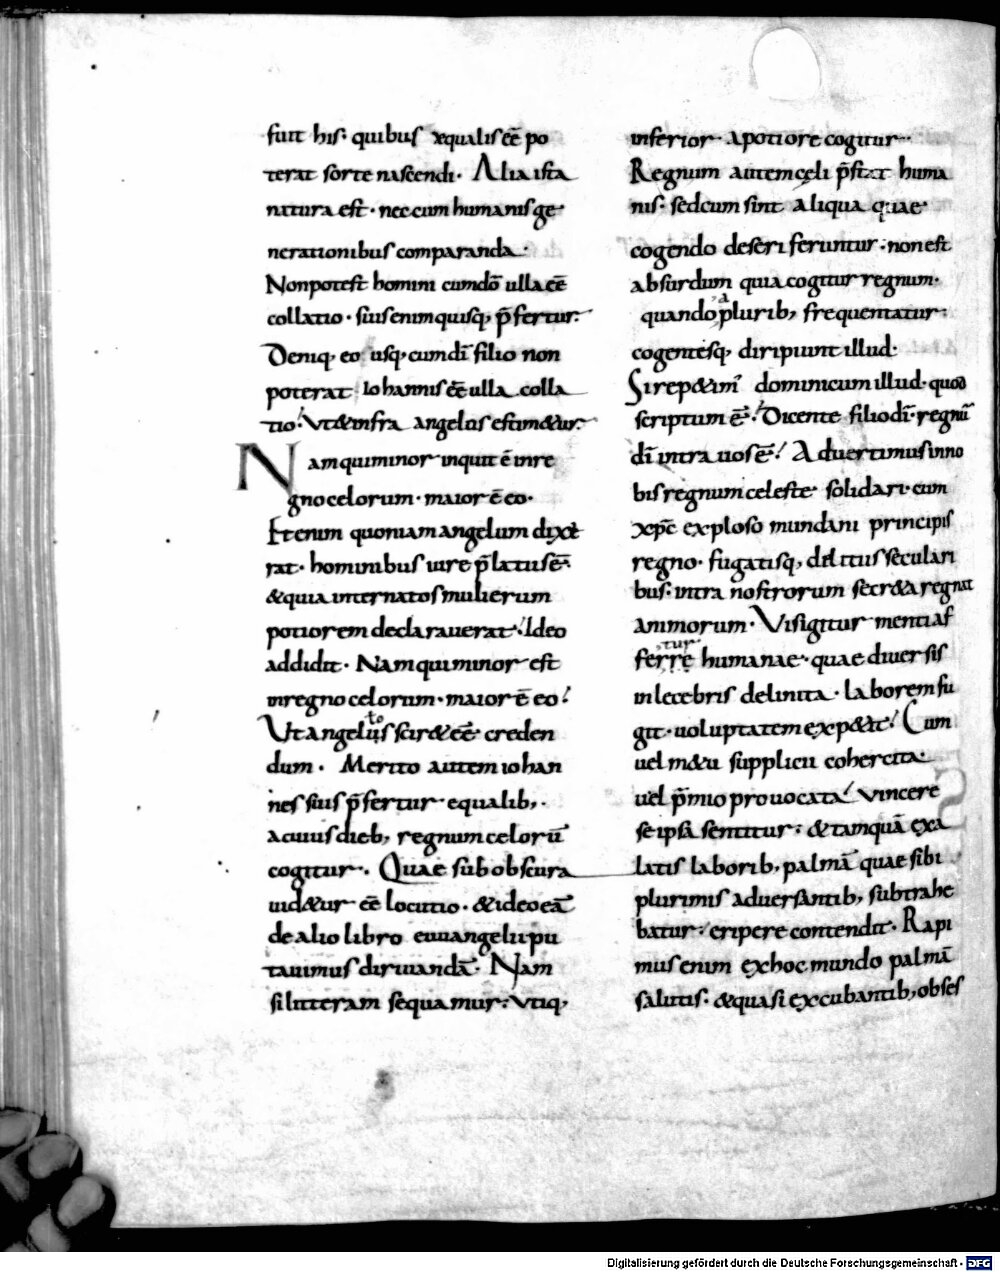 fuit his· quibus aequalis eē po
terat sorte nascendi· Alia ista
natura est· nec cum humanis ge
nerationibus comparanda·
Non potest homini cum dō ulla eē
collatio· suis enim quisq; p̄fertur·
Deniq; eo usq; cum dī filio non
poterat iohannis eē ulla colla
tio· Ut & infra angelos estim&ur·
Nam qui minor inquit ē in re
gno celorum· maior ē eo·
Etenim quoniam angelum dixe
rat· hominibus iure p̄latus ē·
& quia inter natos mulierum
potiorem declarauerat· Ideo
addidit· Nam qui minor est
in regno celorum· maior ē eo·
Ut angelis scir& eē creden
dum· Merito autem iohan
nes suis p̄fertur equalib;·
a cuius dieb; regnum celorū
cogitur· Quae sub obscura
uid&ur eē locutio· & ideo eā
de alio libro euuangelii pu
tauimus diriuandā· Nam
si litteram sequamur· utiq;
inferior a potiore cogitur·
Regnum autem celi p̄stat huma
nis· sed cum sint aliqua quae
cogendo deseri feruntur· non est
absurdum quia cogitur regnum·
quando a plurib; frequentatur·
cogentesq; diripiunt illud·
Si rep&im' dominicum illud· quod
scriptum ē· Dicente filio dī· regnū
dī intra uos ē· Aduertimus in no
bis regnum celeste solidari· cum
xpc̄ exploso mundani principis
regno· fugatisq; delitiis seculari
bus· intra nostrorum secr&a regnat
animorum· Vis igitur menti af
fertur humanae· quae diuersis
inlecebris delinita· laborem fu
git· uoluptatem exp&it· Cum
uel m&u supplicii cohercita·
uel p̄mio prouocata· vincere
se ipsā sentitur· & tamquā exa
latis laborib; palmā quae sibi
plurimis aduersantib; subtrahe
batur· eripere contendit· Rapi
mus enim ex hoc mundo palmā
salutis· & quasi excubantib; obses
Digitalisierung gefördert durch die Deutsche Forschungsgemeinschaft - DFG